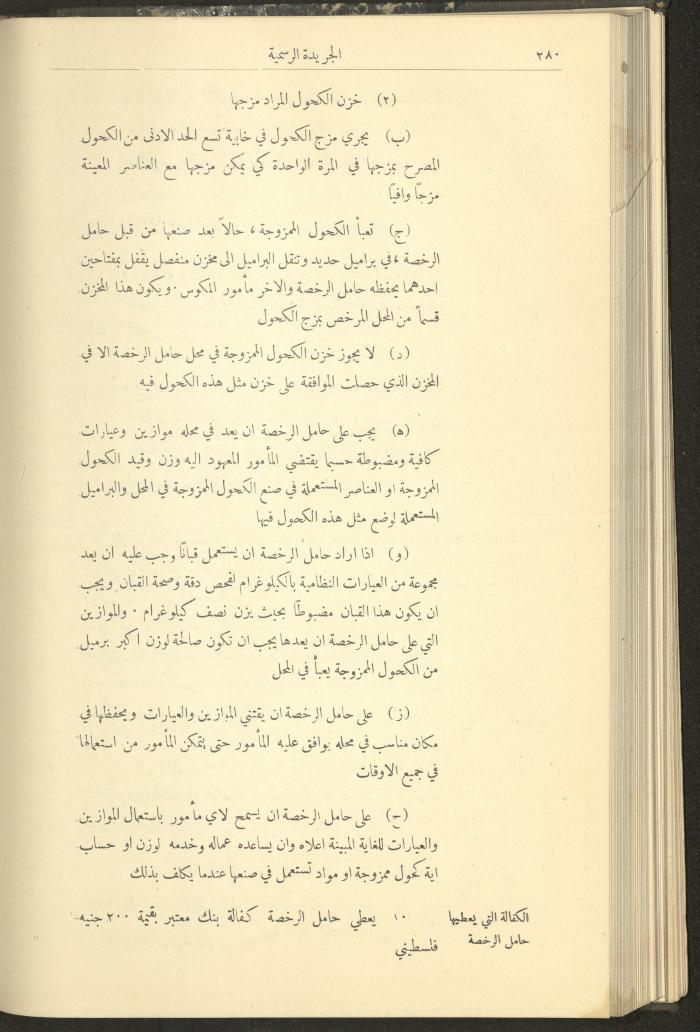 ٢٨٠
الجريدة الرسمية
(٢) خزن الكحول المراد مزجها
(ب) يجري مزج الكحول في خابية تسع الحد الادنى من الكحول
المصرح بمزجها في المرة الواحدة كي يمكن مزجها مع العناصر المعينة
مزجًا وافيًا
(ج) تعبأ الكحول الممزوجة ، حالاً بعد صنعها من قبل حامل
الرخصة ، في براميل حديد وتنقل البراميل الى مخزن منفصل يقفل بمفتاحين
احدهما يحفظه حامل الرخصة والاخر مأمور المكوس . ويكون هذا المخزن
قسماً من المحل المرخص بمزج الكحول
(د) لا يجوز خزن الكحول الممزوجة في محل حامل الرخصة الا في
المخزن الذي حصلت الموافقة على خزن مثل هذه الكحول فيه
(ه) يجب على حامل الرخصة ان يعد في محله موازين وعيارات
كافية ومضبوطة حسبما يقتضي المأمور المعهود اليه وزن وقيد الكحول
الممزوجة او العناصر المستعملة في صنع الكحول الممزوجة في المحل والبراميل
المستعملة لوضع مثل هذه الكحول فيها
(و) اذا اراد حامل الرخصة ان يستعمل قبانًا وجب عليه ان يعد
مجموعة من العيارات النظامية بالكيلوغرام لفحص دقة وصحة القبان ويجب
ان يكون هذا القبان مضبوطًا بحيث يزن نصف كيلوغرام . والموازين
التي على حامل الرخصة ان يعدها يجب ان تكون صالحة لوزن اكبر برميل
من الكحول الممزوجة يعبأ في المحل
(ز) على حامل الرخصة ان يقتني الموازين والعيارات ويحفظها في
مكان مناسب في محله يوافق عليه المأمور حتى يتمكن المأمور من استعمالها
في جميع الاوقات
(ح) على حامل الرخصة ان يسمح لاي مأمور باستعمال الموازين
والعيارات للغاية المبينة اعلاه وان يساعده عماله وخدمه لوزن او حساب
اية كحول ممزوجة او مواد تستعمل في صنعها عندما يكلف بذلك
الكفالة التي يعطيها
حامل الرخصة
١٠ يعطي حامل الرخصة كفالة بنك معتبر بقيمة ٢٠٠ جنيه
فلسطيني